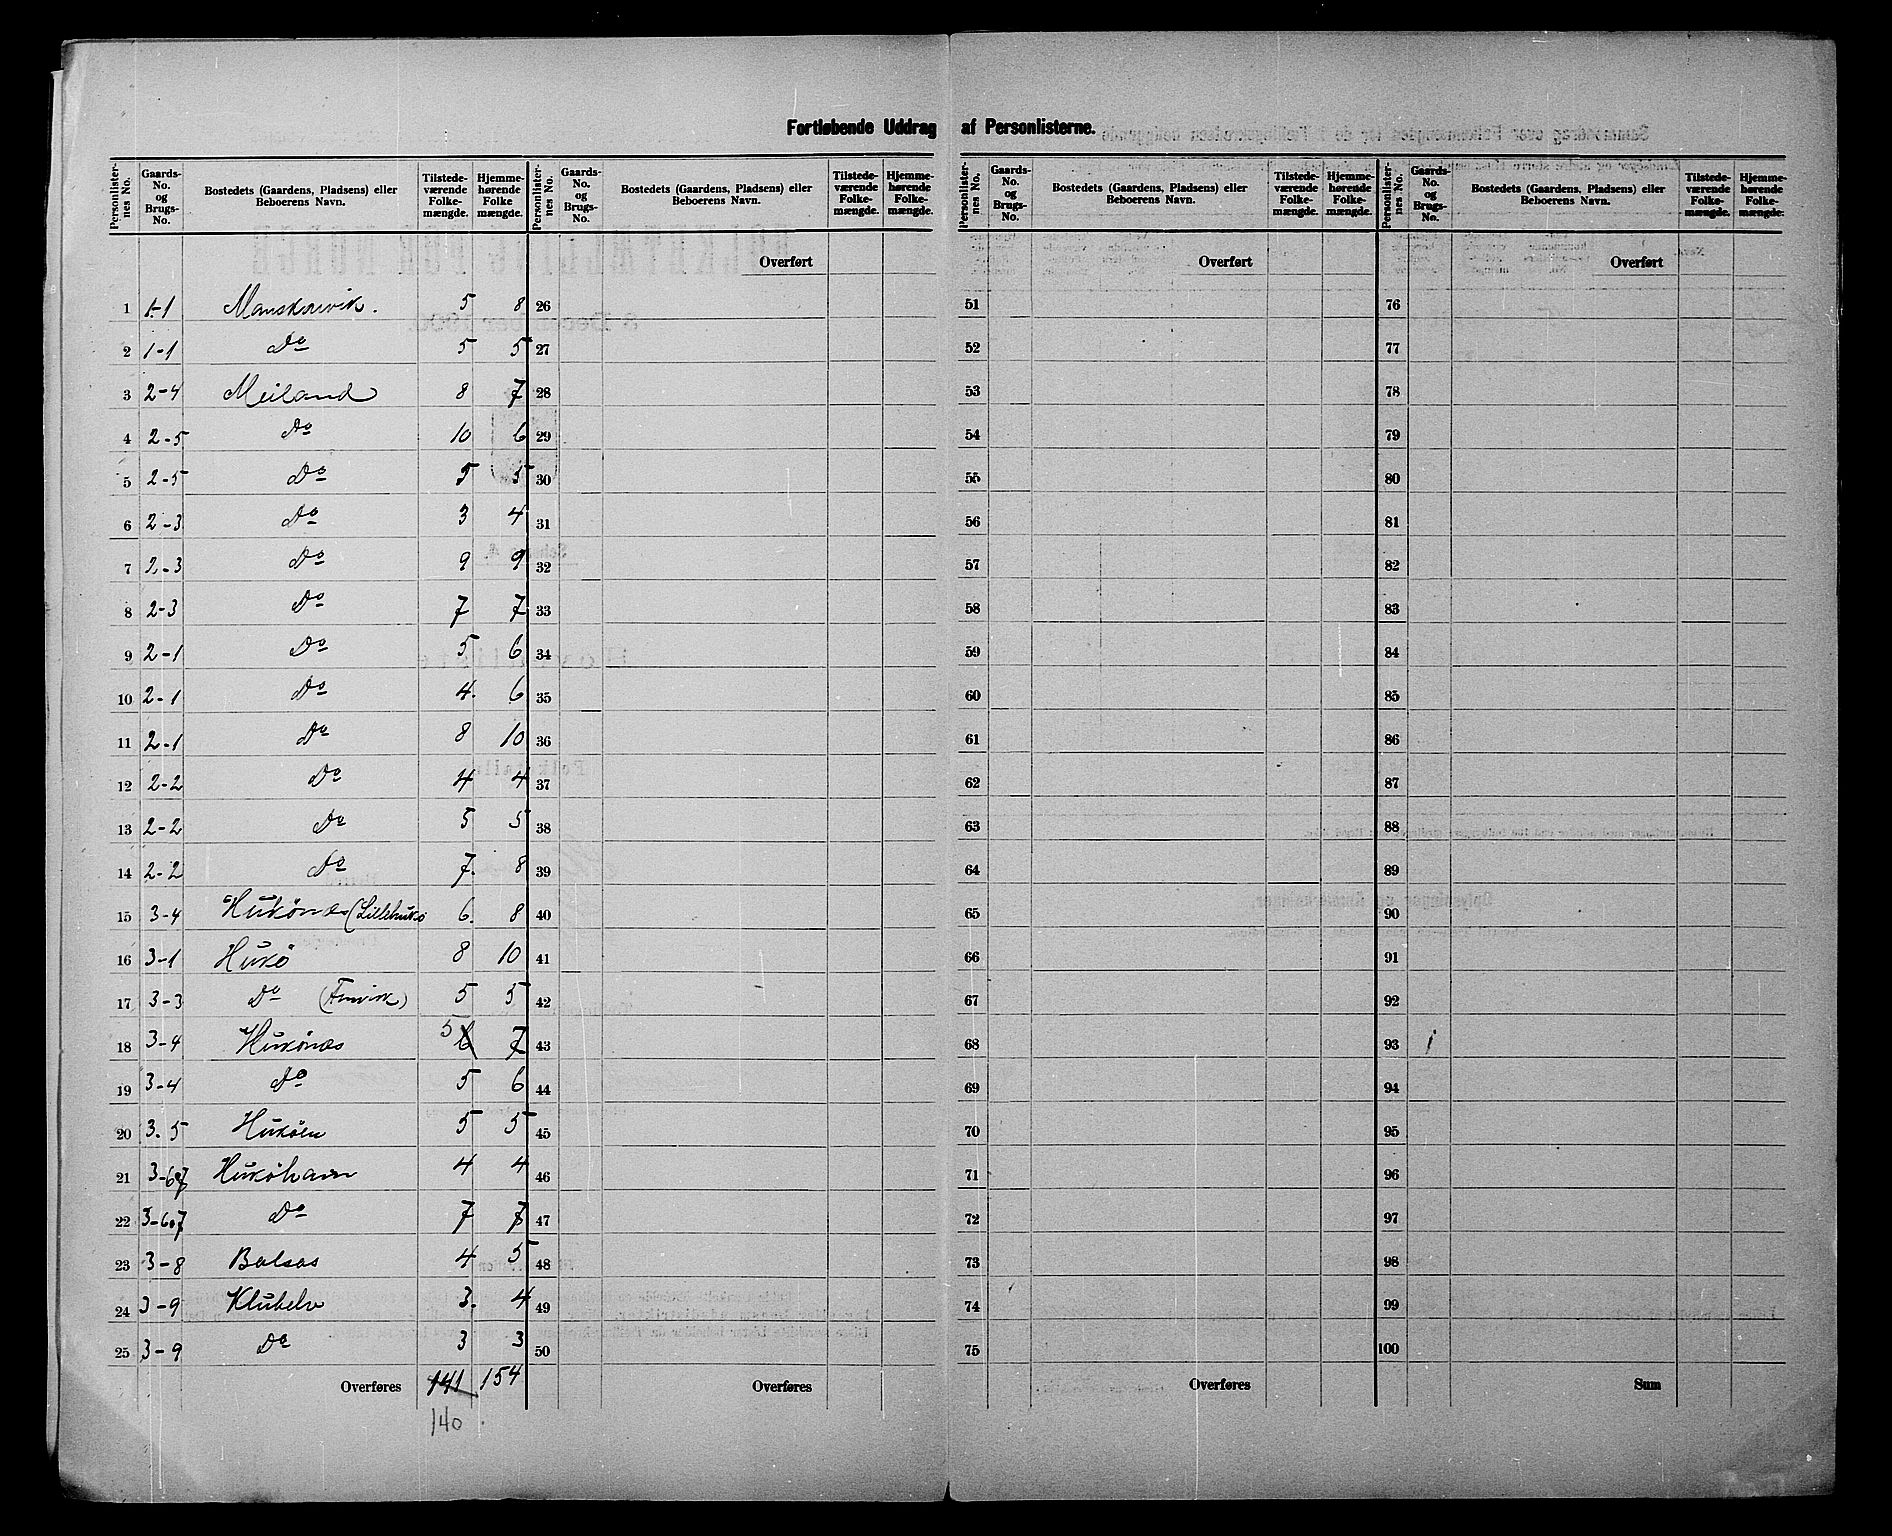 Fortløbende Uddrag af Personlisterne.
Personlisternes No. | Gaards-No. og Brugs-No. | Bostedets (Gaardens, Pladsens) eller Beboerens Navn. | Tilstedeværende Folkemængde. | Hjemmehørende Folkemængde.
1 1-1 5 8
2 1-1 Do 5 5
3 2-4 Meiland 8 7
4 2-5 Do 10 6
5 2-5 Do 5 5
6 2-3 Do 3 4
7 2-3 Do 9 9
8 2-3 Do 7 7
9 2-1 Do 5 6
10 2-1 Do 4. 6
11 2-1 Do 8 10
12 2-2 Do 4 4
13 2-2 Do 5 5
14 2-2 Do 7. 8
15 3-4 Hukönæs (Lillehukö 6. 8
16 3-1 Hukö 8 10
17 3-3 Do 5 5
18 3-4 Hukönæs 5 6 7
19 3-4 Do 5 6
20 3.5 5 5
21 3-6,7 Huköhavn 4 4
22 3-6,7 Do 7 7
23 3-8 Balsøs 4 5
24 3-9 Klubelv 3. 4
25 3-9 Do 3 3
Overføres 141 154
140
Personlisternes No. | Gaards-No. og Brugs-No. | Bostedets (Gaardens, Pladsens) eller Beboerens Navn. | Tilstedeværende Folkemængde. | Hjemmehørende Folkemængde.
Overført
26
27
28
29
30
31
32
33
34
35
36
37
38
39
40
41
42
43
44
45
46
47
48
49
50
Overføres
Personlisternes No. | Gaards-No. og Brugs-No. | Bostedets (Gaardens, Pladsens) eller Beboerens Navn. | Tilstedeværende Folkemængde. | Hjemmehørende Folkemængde.
Overført
51
52
53
54
55
56
57
58
59
60
61
62
63
64
65
66
67
68
69
70
71
72
73
74
75
Overføres
Personlisternes No. | Gaards-No. og Brugs-No. | Bostedets (Gaardens, Pladsens) eller Beboerens Navn. | Tilstedeværende Folkemængde. | Hjemmehørende Folkemængde.
Overført
76
77
78
79
80
81
82
83
84
85
86
87
88
89
90
91
92
93
94
95
96
97
98
99
100
Sum